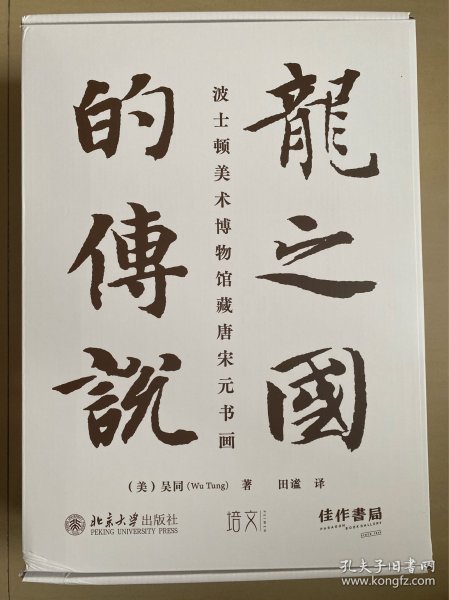 龍之國
的傳説
波士顿美术博物馆藏唐宋元书画
（美）吴同 (Wu Tung) 著 田谧 译
北京大学出版社
PEKING UNIVERSITY PRESS
培文
佳作書局
PARAGON BOOK GALLERY
孔夫子旧书网
www.kongfz.com